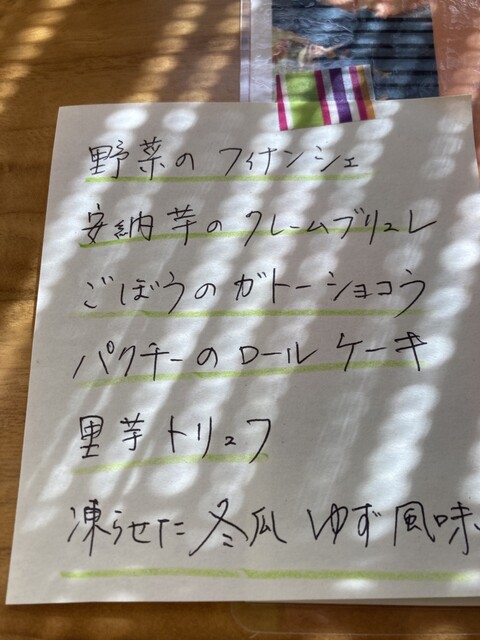 野菜のフィナンシェ
安納芋のクレームブリュレ
ごぼうのガトーショコラ
パクチーのロールケーキ
里芋トリュフ
凍らせた冬瓜 ゆず風味